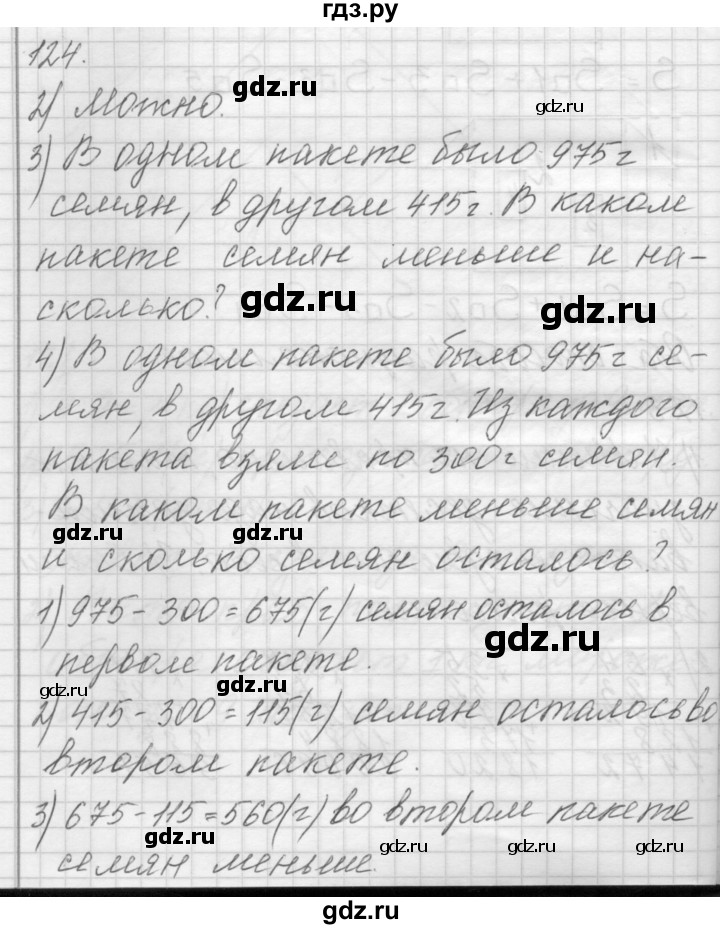 гдз.ру
124.
2) Можно.
3) В одном пакете было 975 г
семян, в другом 415 г. В каком
пакете семян меньше и на-
сколько?
4) В одном пакете было 975 г се-
мян, в другом 415 г. Из каждого
пакета взяли по 300 г семян.
В каком пакете меньше семян
и сколько семян осталось?
1) 975 - 300 = 675 (г) семян осталось в
первом пакете.
2) 415 - 300 = 115 (г) семян осталось во
втором пакете.
3) 675 - 115 = 560 (г) во втором пакете
семян меньше.
gdz.ru
gdz.ru
gdz.ru
gdz.ru
gdz.ru
gdz.ru
gdz.ru
gdz.ru
gdz.ru
gdz.ru
gdz.ru
gdz.ru